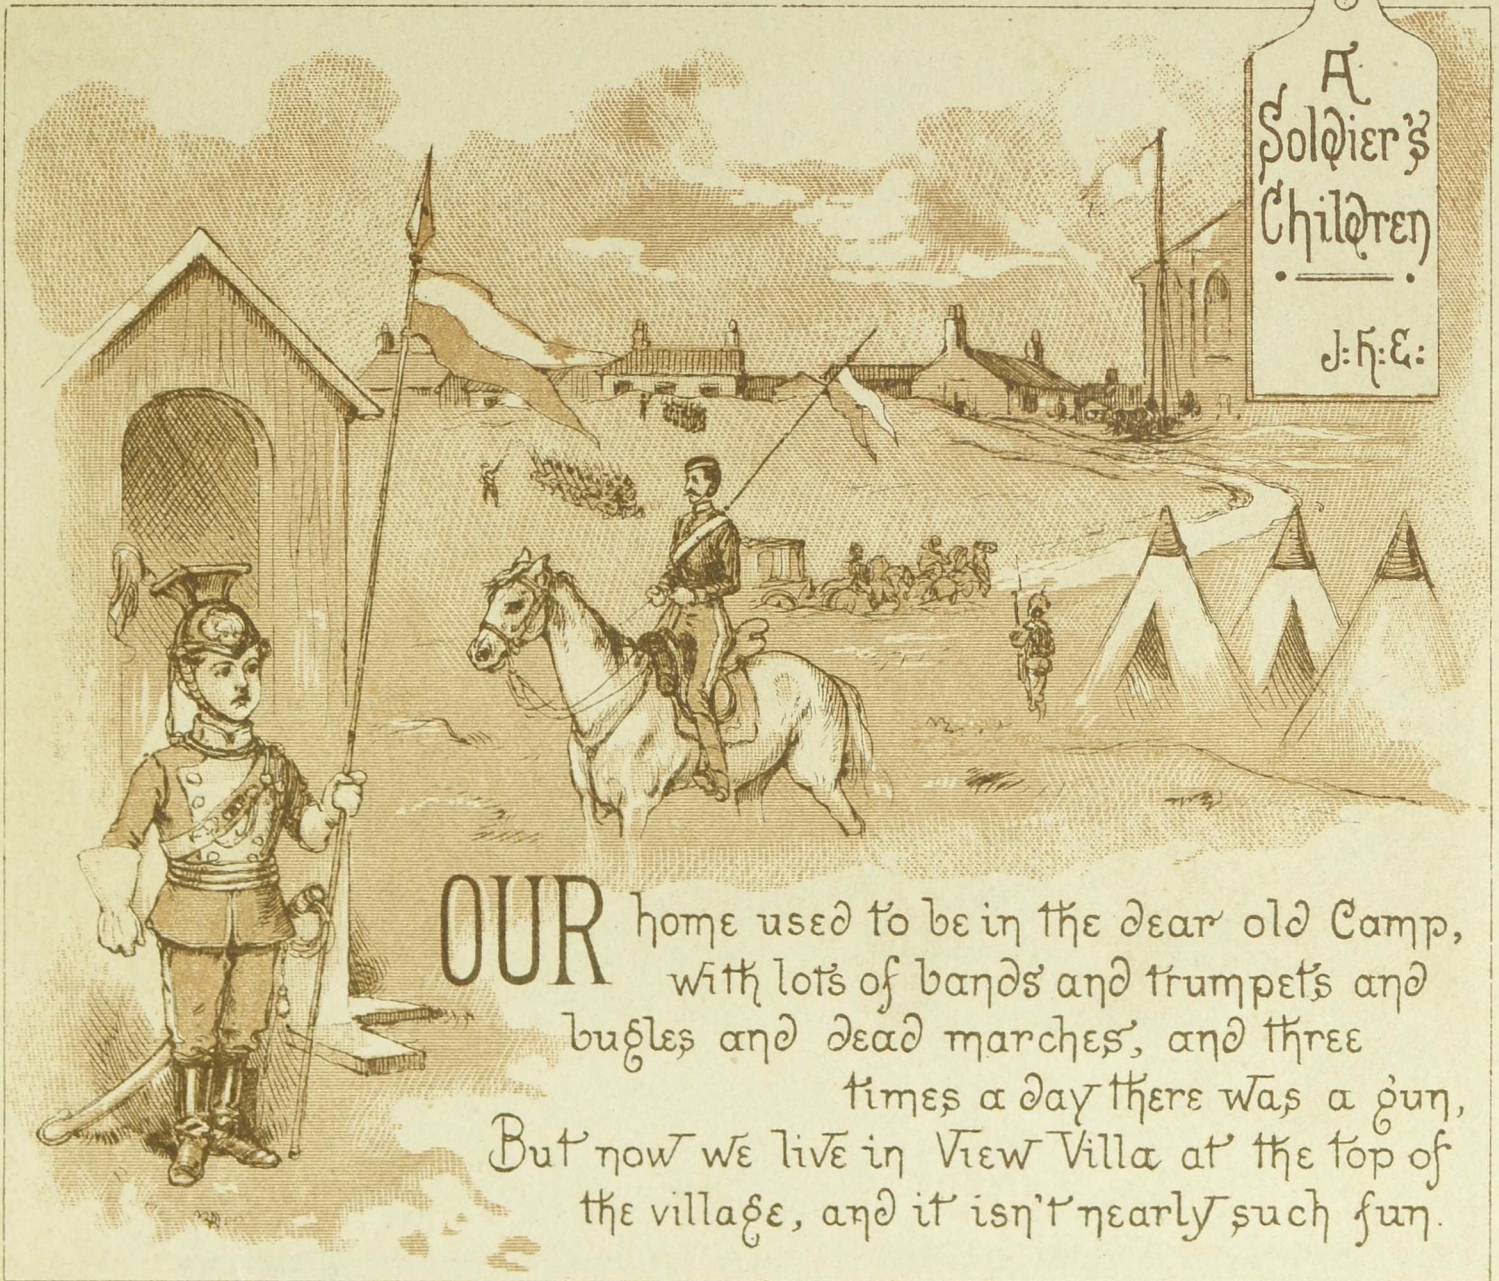 A
Soldier's
Children
J: H: E:
OUR home used to be in the dear old Camp,
with lots of bands and trumpets and
bugles and dead marches, and three
times a day there was a gun,
But now we live in View Villa at the top of
the village, and it isn't nearly such fun.